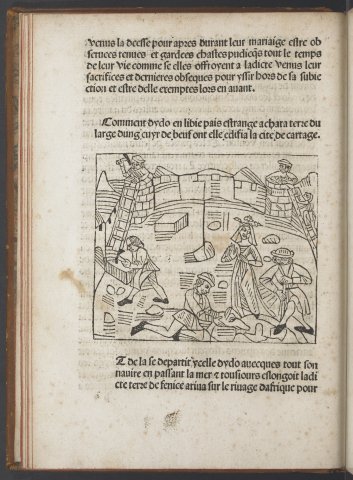 venus la deesse pour apres durant leur mariaige estre ob
seruees tenues et gardees chastes pudicqs tout le temps
de leur vie comme se elles offroyent a ladicte venus leur
sacrifices et dernieres obseques pour yssir hors de sa subie
ction et estre delle exemptes lors en auant.
Comment dydo en libie pais estrange achata terre du
large dung cuyr de beuf ont elle edifia la cite de cartage.
T de la se departit ycelle dydo auecques tout son
nauire en passant la mer ⁊ tousiours eslongoit ladi
cte terre de fenice ariua sur le riuage dafrique pour